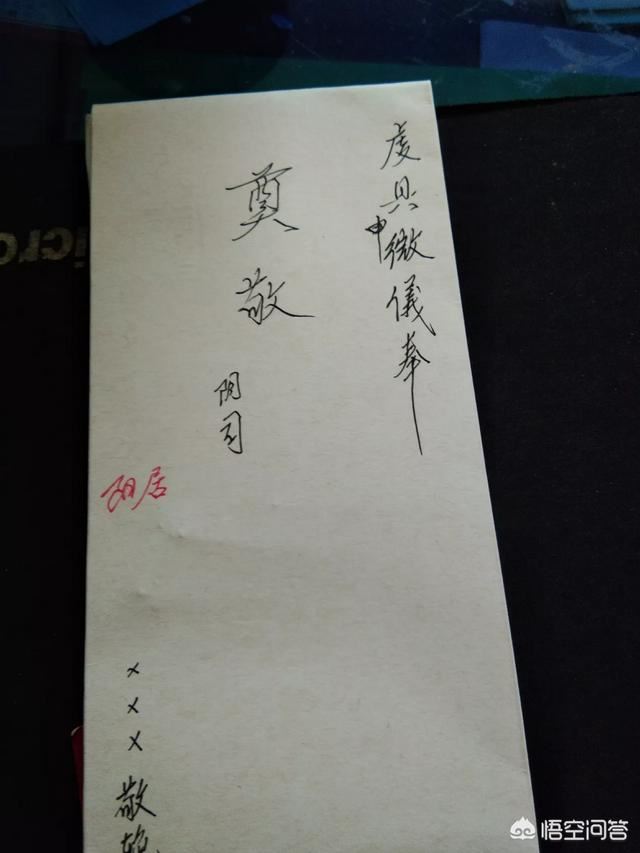 虔具申微儀奉
奠敬
阴司
阳居
×××敬
悟空问答